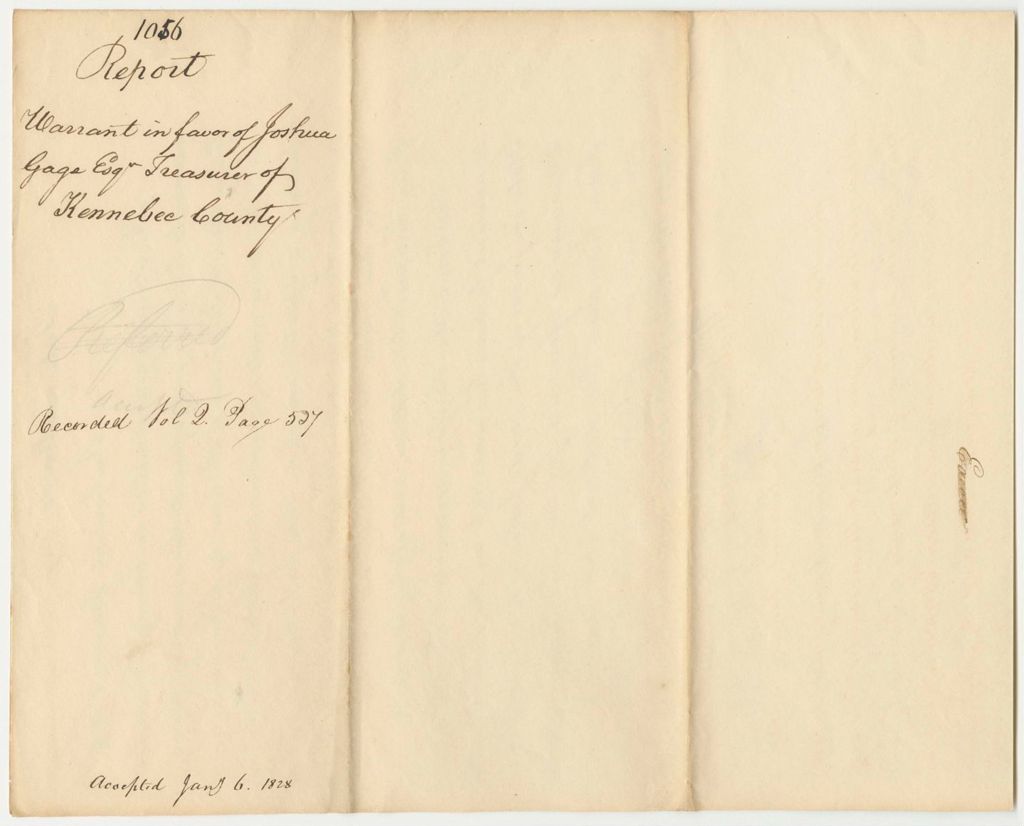 1056
Report
Warrant in favor of Joshua
Gage Esqr Treasurer of
Kennebec County
Referred
Recorded Vol 2. Page 527
Accepted Jany 6. 1828